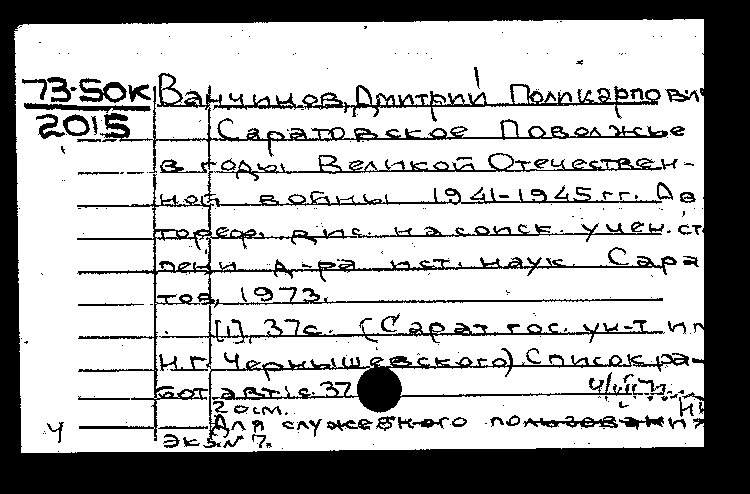 73-50К Ванчинов, Дмитрий Поликарпович
2015
Саратовское Поволжье
в годы Великой Отечествен-
ной войны 1941-1945 гг. Ав
тореф. дис. на соиск. учен. ст
пени д-ра ист. наук. Сара
тов, 1973.
[1], 37с. (Сарат. гос. ун-т им
Н.Г. Чернышевского). Список ра-
бот авт.: с. 37
20 см.
Для служебного пользования
Экз. № 7.
Ч